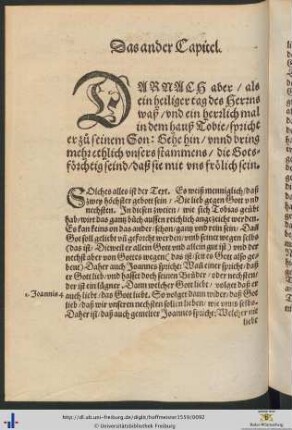 Das ander Capitel.
DARNACH aber / als
ein heiliger tag des Herrns
waß / vnd ein herrlich mal
in dem hauß Tobie / spricht
er zů seinem Son: Gehe hin / vnnd bring
mehr ethlich vnsers stammens / die Gots-
förchtig seind / daß sie mit vns frölich sein.
SOlches alles ist der Text. Es weiß menniglich / daß
zwey höchster gebott sein / Die lieb gegen Gott vnd
nechsten. In diesen zweien / wie sich Tobias geübt
hab / wirt das gantz bůch außen reichlich angezeicht werden.
Es kan keins on das ander / schon / gantz vnd rein sein / Daß
Got soll geliebt vñ geforcht werden / vmb seinet wegen selbs
(das ist / Dieweil er allein Gott vnd allein gut ist) vnd der
nechst aber von Gottes wegen (das ist / seit es Got also ge-
beut) Daher auch Joannis spricht: Was einer spricht / daß
er Gott lieb / vnd hasset doch seinen Brůder / oder nechsten /
der ist ein lügner. Dann welcher Gott liebt / volget daß er
1. Joannis. 4
auch liebt / das Got liebt. So volget dann wider / daß Got
lieb / daß wir vnseren nechsten sollen lieben / wie vnns selbs.
Daher ist / daß auch gemelter Joannes spricht / Welcher nit
liebt
http://dl.ub.uni-freiburg.de/diglit/hoffmeister1539/0092
© Universitätsbibliothek Freiburg
Baden-Württemberg